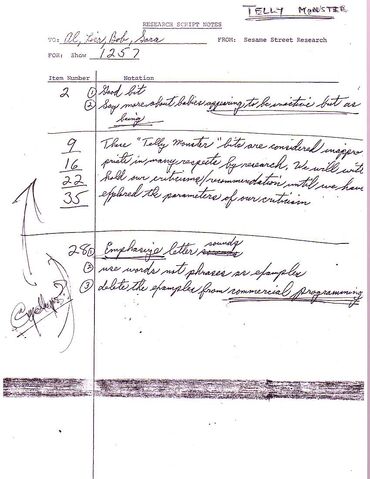 TELLY MONSTER
RESEARCH SCRIPT NOTES
TO: Al, Bob, Sara FROM: Sesame Street Research
FOR: Show 1257
Item Number Notation
2 ① Good bit
② Say more about babies appearing to be inactive but as
being
9 These "Telly Monster" bits are considered inappro
16 priate in many respects by research. We will with
22 hold our criticisms/recommendation until we have
35 explored the parameters of our criticism
28 ① Emphasize letter sounds
② use words not phrases as examples
③ delete the examples from commercial programming